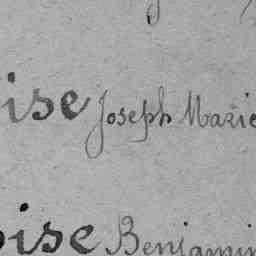 ise Joseph Marie
oise Benjamin